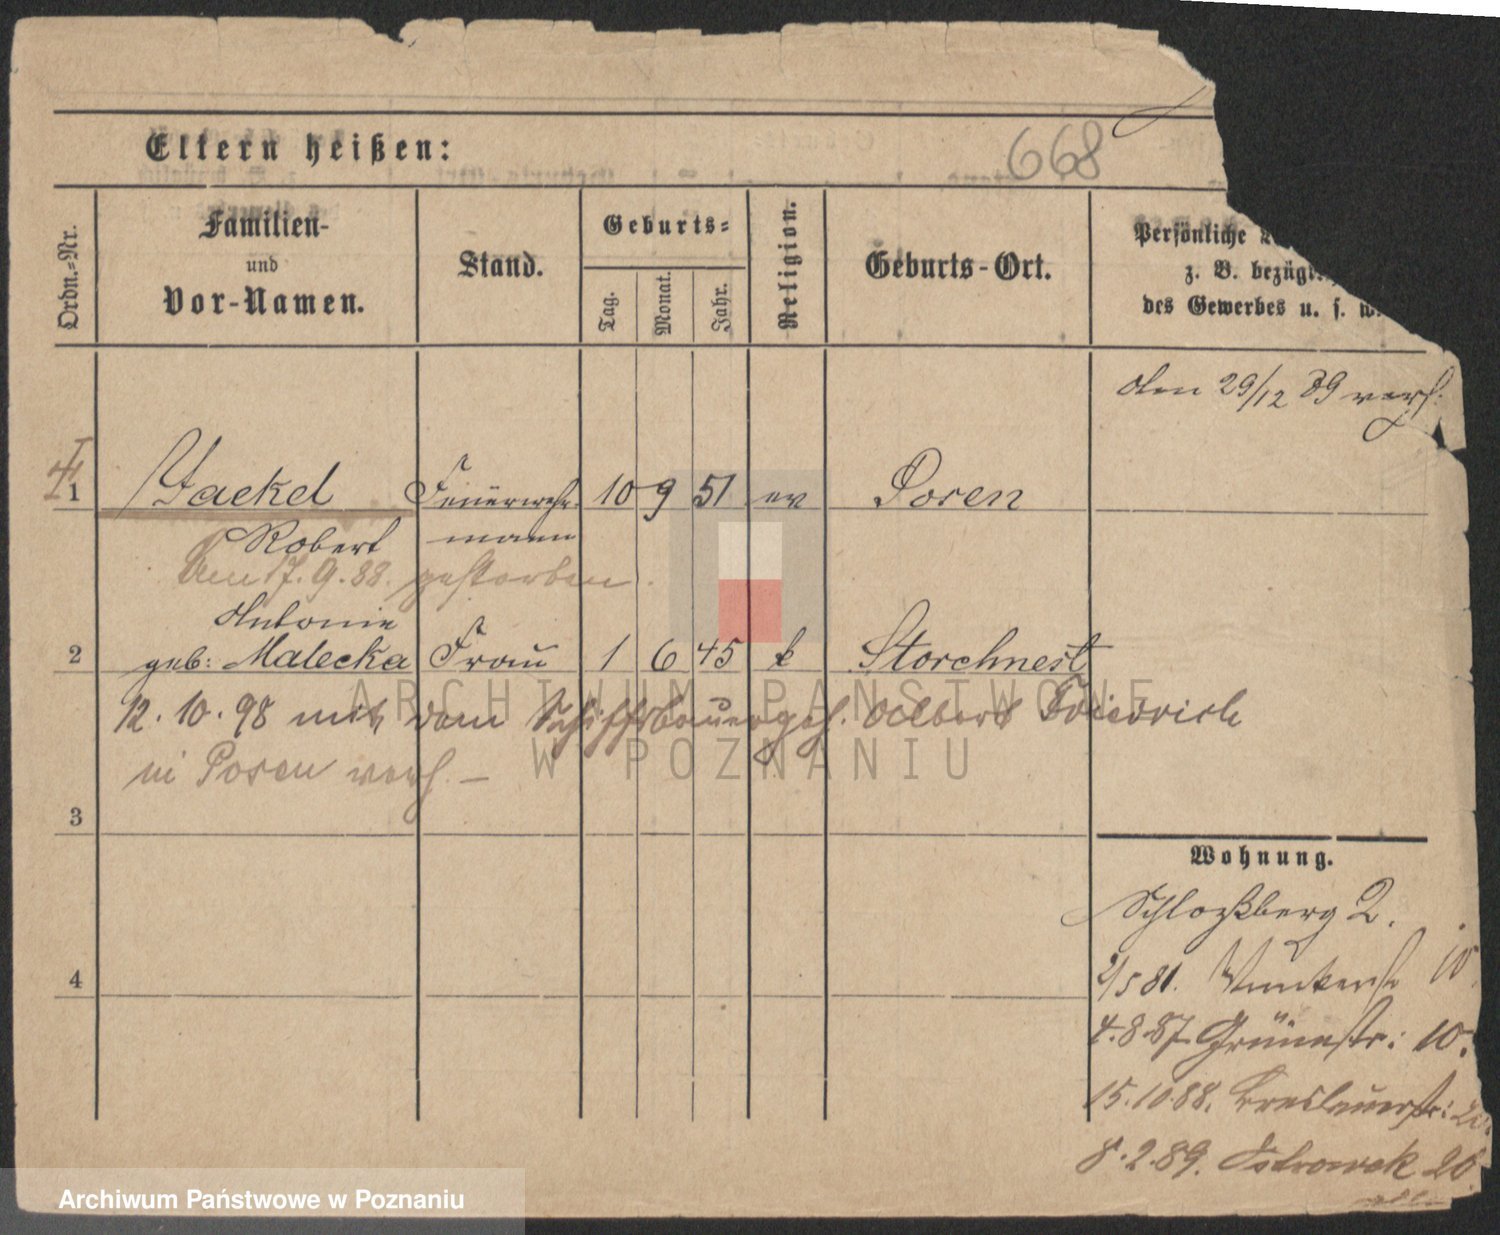 668
Eltern heißen:
Ordn.-Nr.
Familien-
und
Vor-Namen.
Stand.
Geburts-
Tag.
Monat.
Jahr.
Religion.
Geburts-Ort.
Persönliche
z. B. bezügl.
des Gewerbes u. s. w.
den 29/12 89 verh.
1 Jaekel Feuerwehr- 10 9 51 ev Posen
Robert mann
Am 17.9.88. gestorben.
Antonie
2 geb: Malecka Frau 1 6 45 k Storchnest
12.10.98 mit dem Schiffsbauergeh. Albert Friedrich
in Posen verh. —
3
4
Wohnung.
Schloßberg 2.
2/5 81. 10.
4.8.87 Grünestr: 10.
15.10.88. Breslauerstr:
8.2.89. Ostrowek 26.
ARCHIWUM PAŃSTWOWE
W POZNANIU
Archiwum Państwowe w Poznaniu